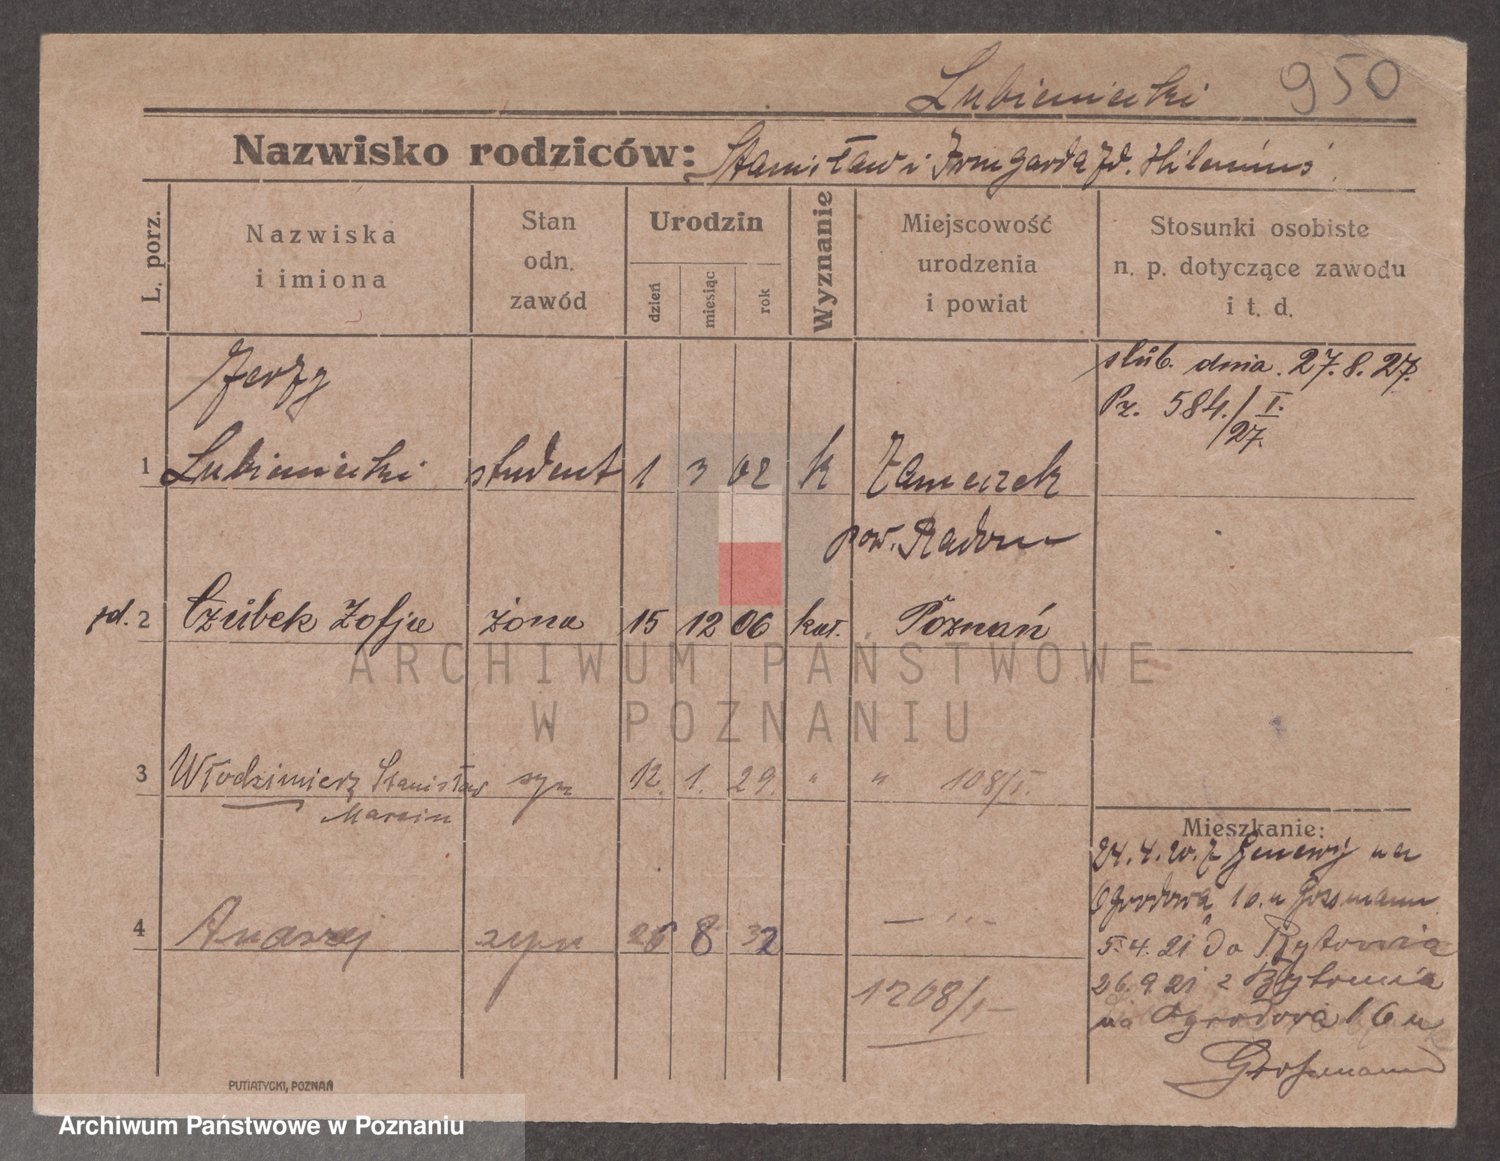 Lubieniecki 950
Nazwisko rodziców: Stanisław i Irmgarda
L. porz.
Nazwiska
i imiona
Stan
odn.
zawód
Urodzin
dzień
miesiąc
rok
Wyznanie
Miejscowość
urodzenia
i powiat
Stosunki osobiste
n. p. dotyczące zawodu
i t. d.
Jerzy
ślub. dnia. 27.8.27.
Pz. 584./I.
/27.
1 Lubieniecki student 1 3 02 k Zameczek
pow. Radom
jd. 2 Czubek Zofja żona 15 12 06 kat. Poznań
ARCHIWUM PAŃSTWOWE
W POZNANIU
3 Włodzimierz Stanisław syn 12. 1. 29. " " 108/I.
Marcin
Mieszkanie:
24.4.20. z Genewy na
Ogrodowa 10. u Grossmann
4 Andrzej syn 26 8 32 — " —
5.4.21 do Bytomia
26.9 21 z Bytomia
1208/I—
na Ogrodowa 16 u
Grossmann
PUTIATYCKI, POZNAŃ
Archiwum Państwowe w Poznaniu